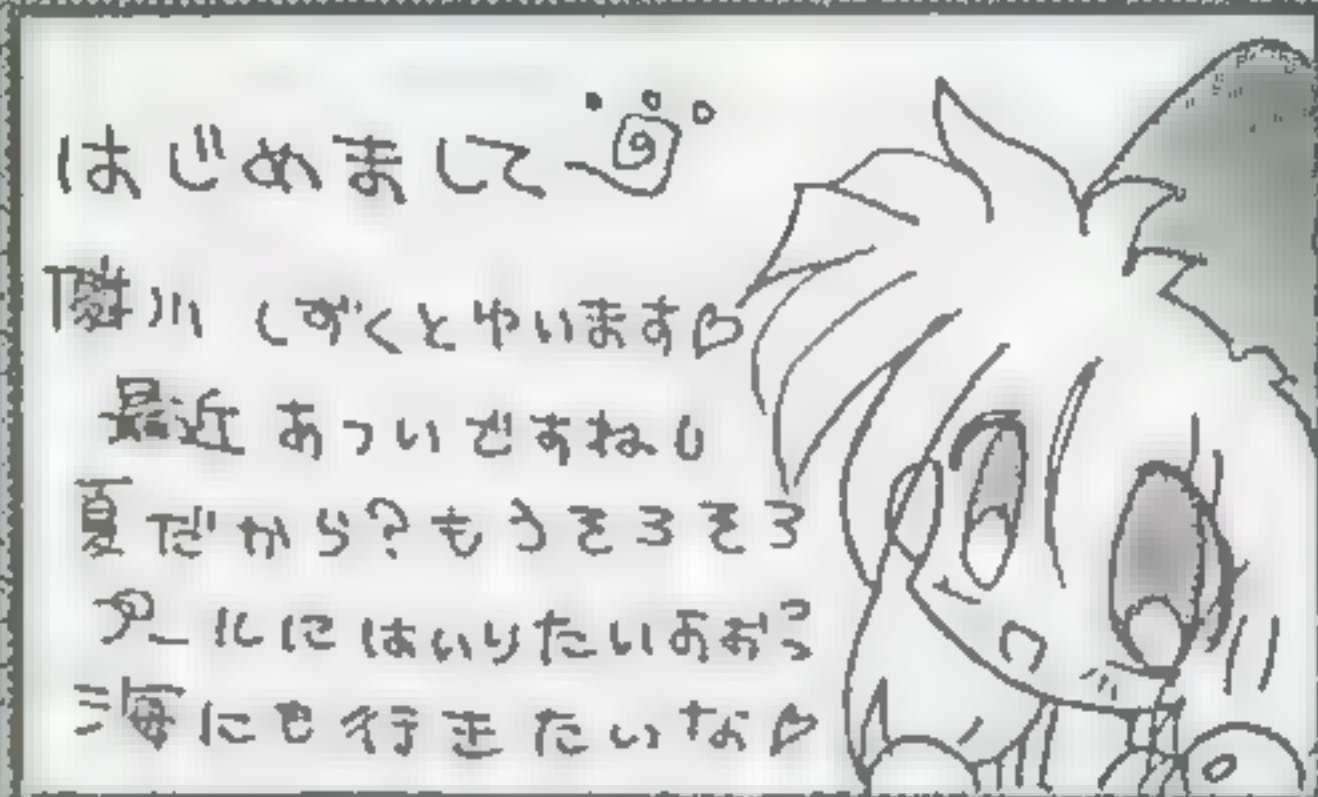 はじめまして
隣川 しずくとゆいます♡
最近 あついですねし
夏だから?もうそろそろ
プールにはいりたいおおっ
海にも行きたいなぁ♡